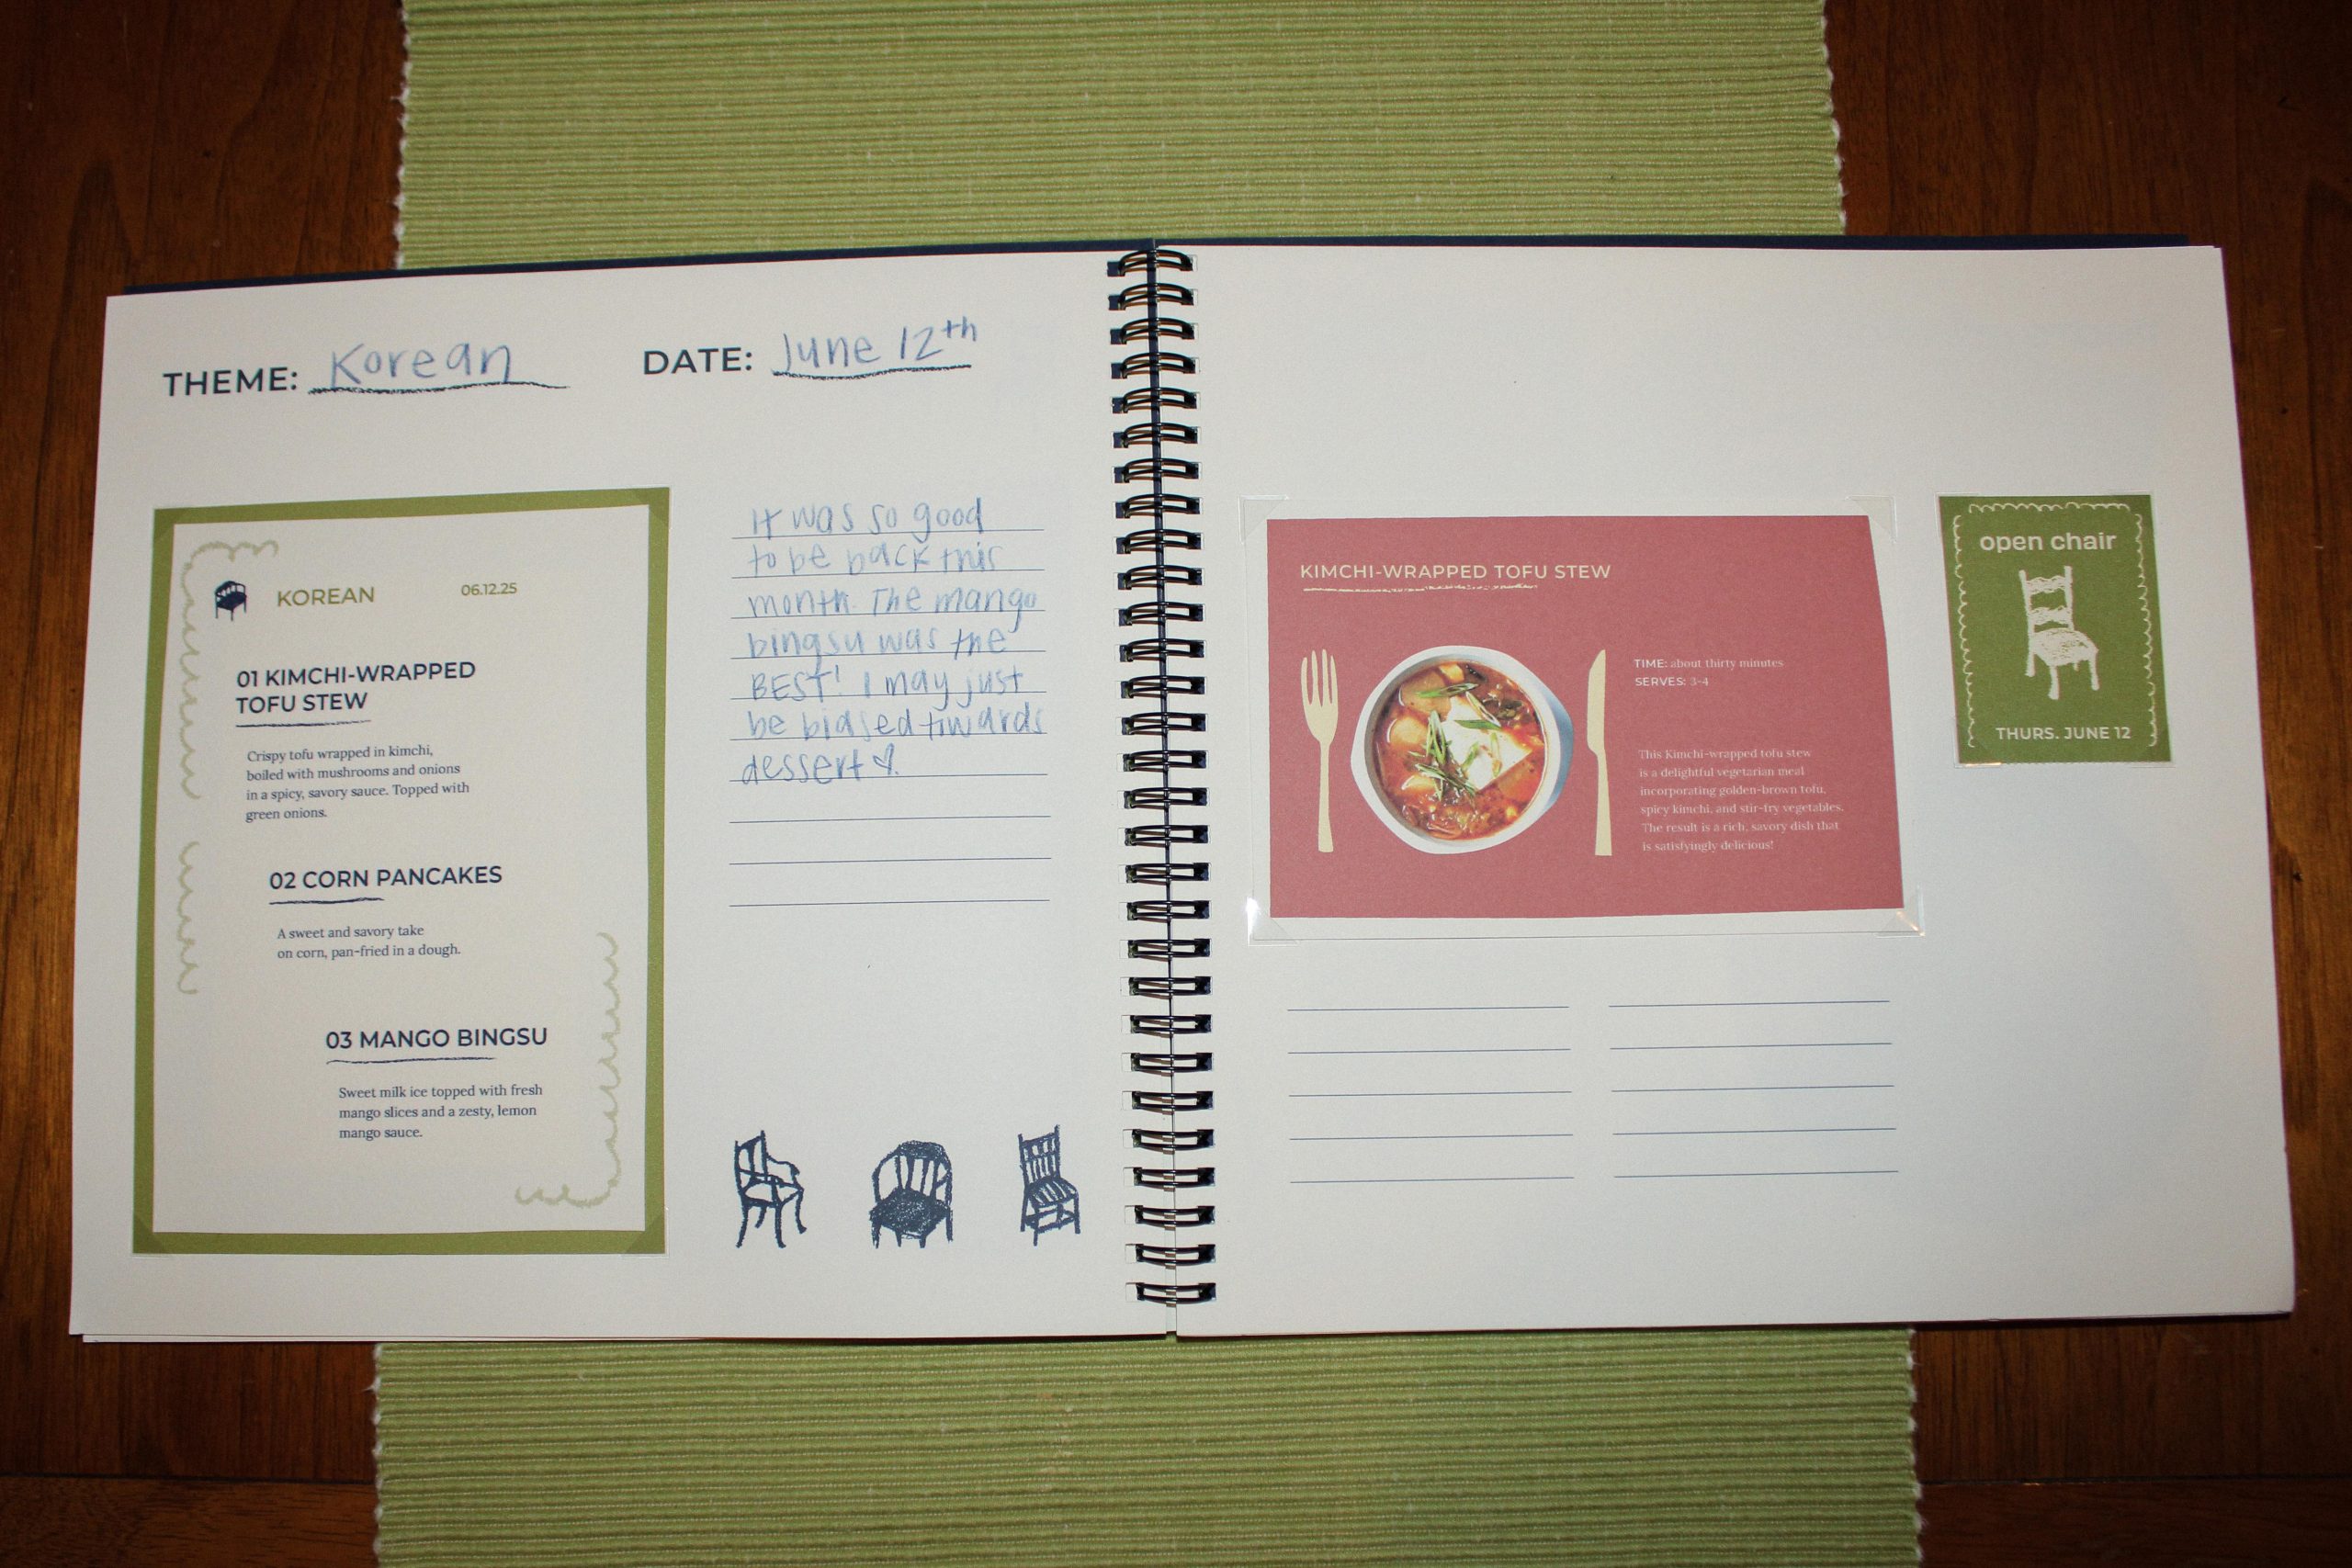 THEME: Korean
DATE: June 12th
KOREAN 06.12.25
01 KIMCHI-WRAPPED
TOFU STEW
Crispy tofu wrapped in kimchi,
boiled with mushrooms and onions
in a spicy, savory sauce. Topped with
green onions.
02 CORN PANCAKES
A sweet and savory take
on corn, pan-fried in a dough.
03 MANGO BINGSU
Sweet milk ice topped with fresh
mango slices and a zesty, lemon
mango sauce.
It was so good
to be back this
month. The mango
bingsu was the
BEST! I may just
be biased towards
dessert
KIMCHI-WRAPPED TOFU STEW
TIME: about thirty minutes
SERVES: 3-4
This Kimchi-wrapped tofu stew
is a delightful vegetarian meal
incorporating golden-brown tofu,
spicy kimchi, and stir-fry vegetables.
The result is a rich, savory dish that
is satisfyingly delicious!
open chair
THURS. JUNE 12